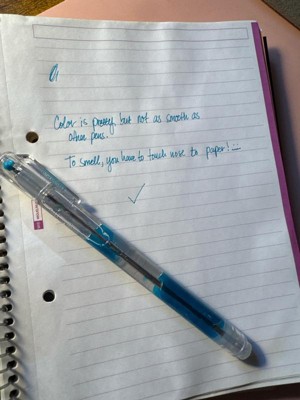 Color is pretty, but not as smooth as
other pens.
To smell, you have to touch nose to paper!